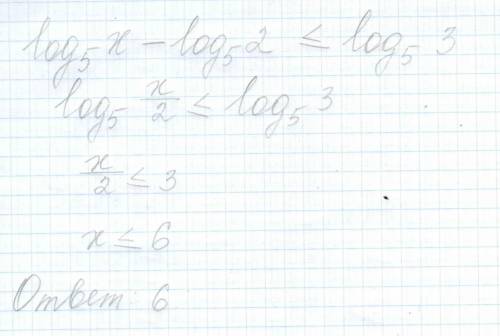 log₅ x − log₅ 2 ≤ log₅ 3
log₅ x/2 ≤ log₅ 3
x/2 ≤ 3
x ≤ 6
Ответ: 6